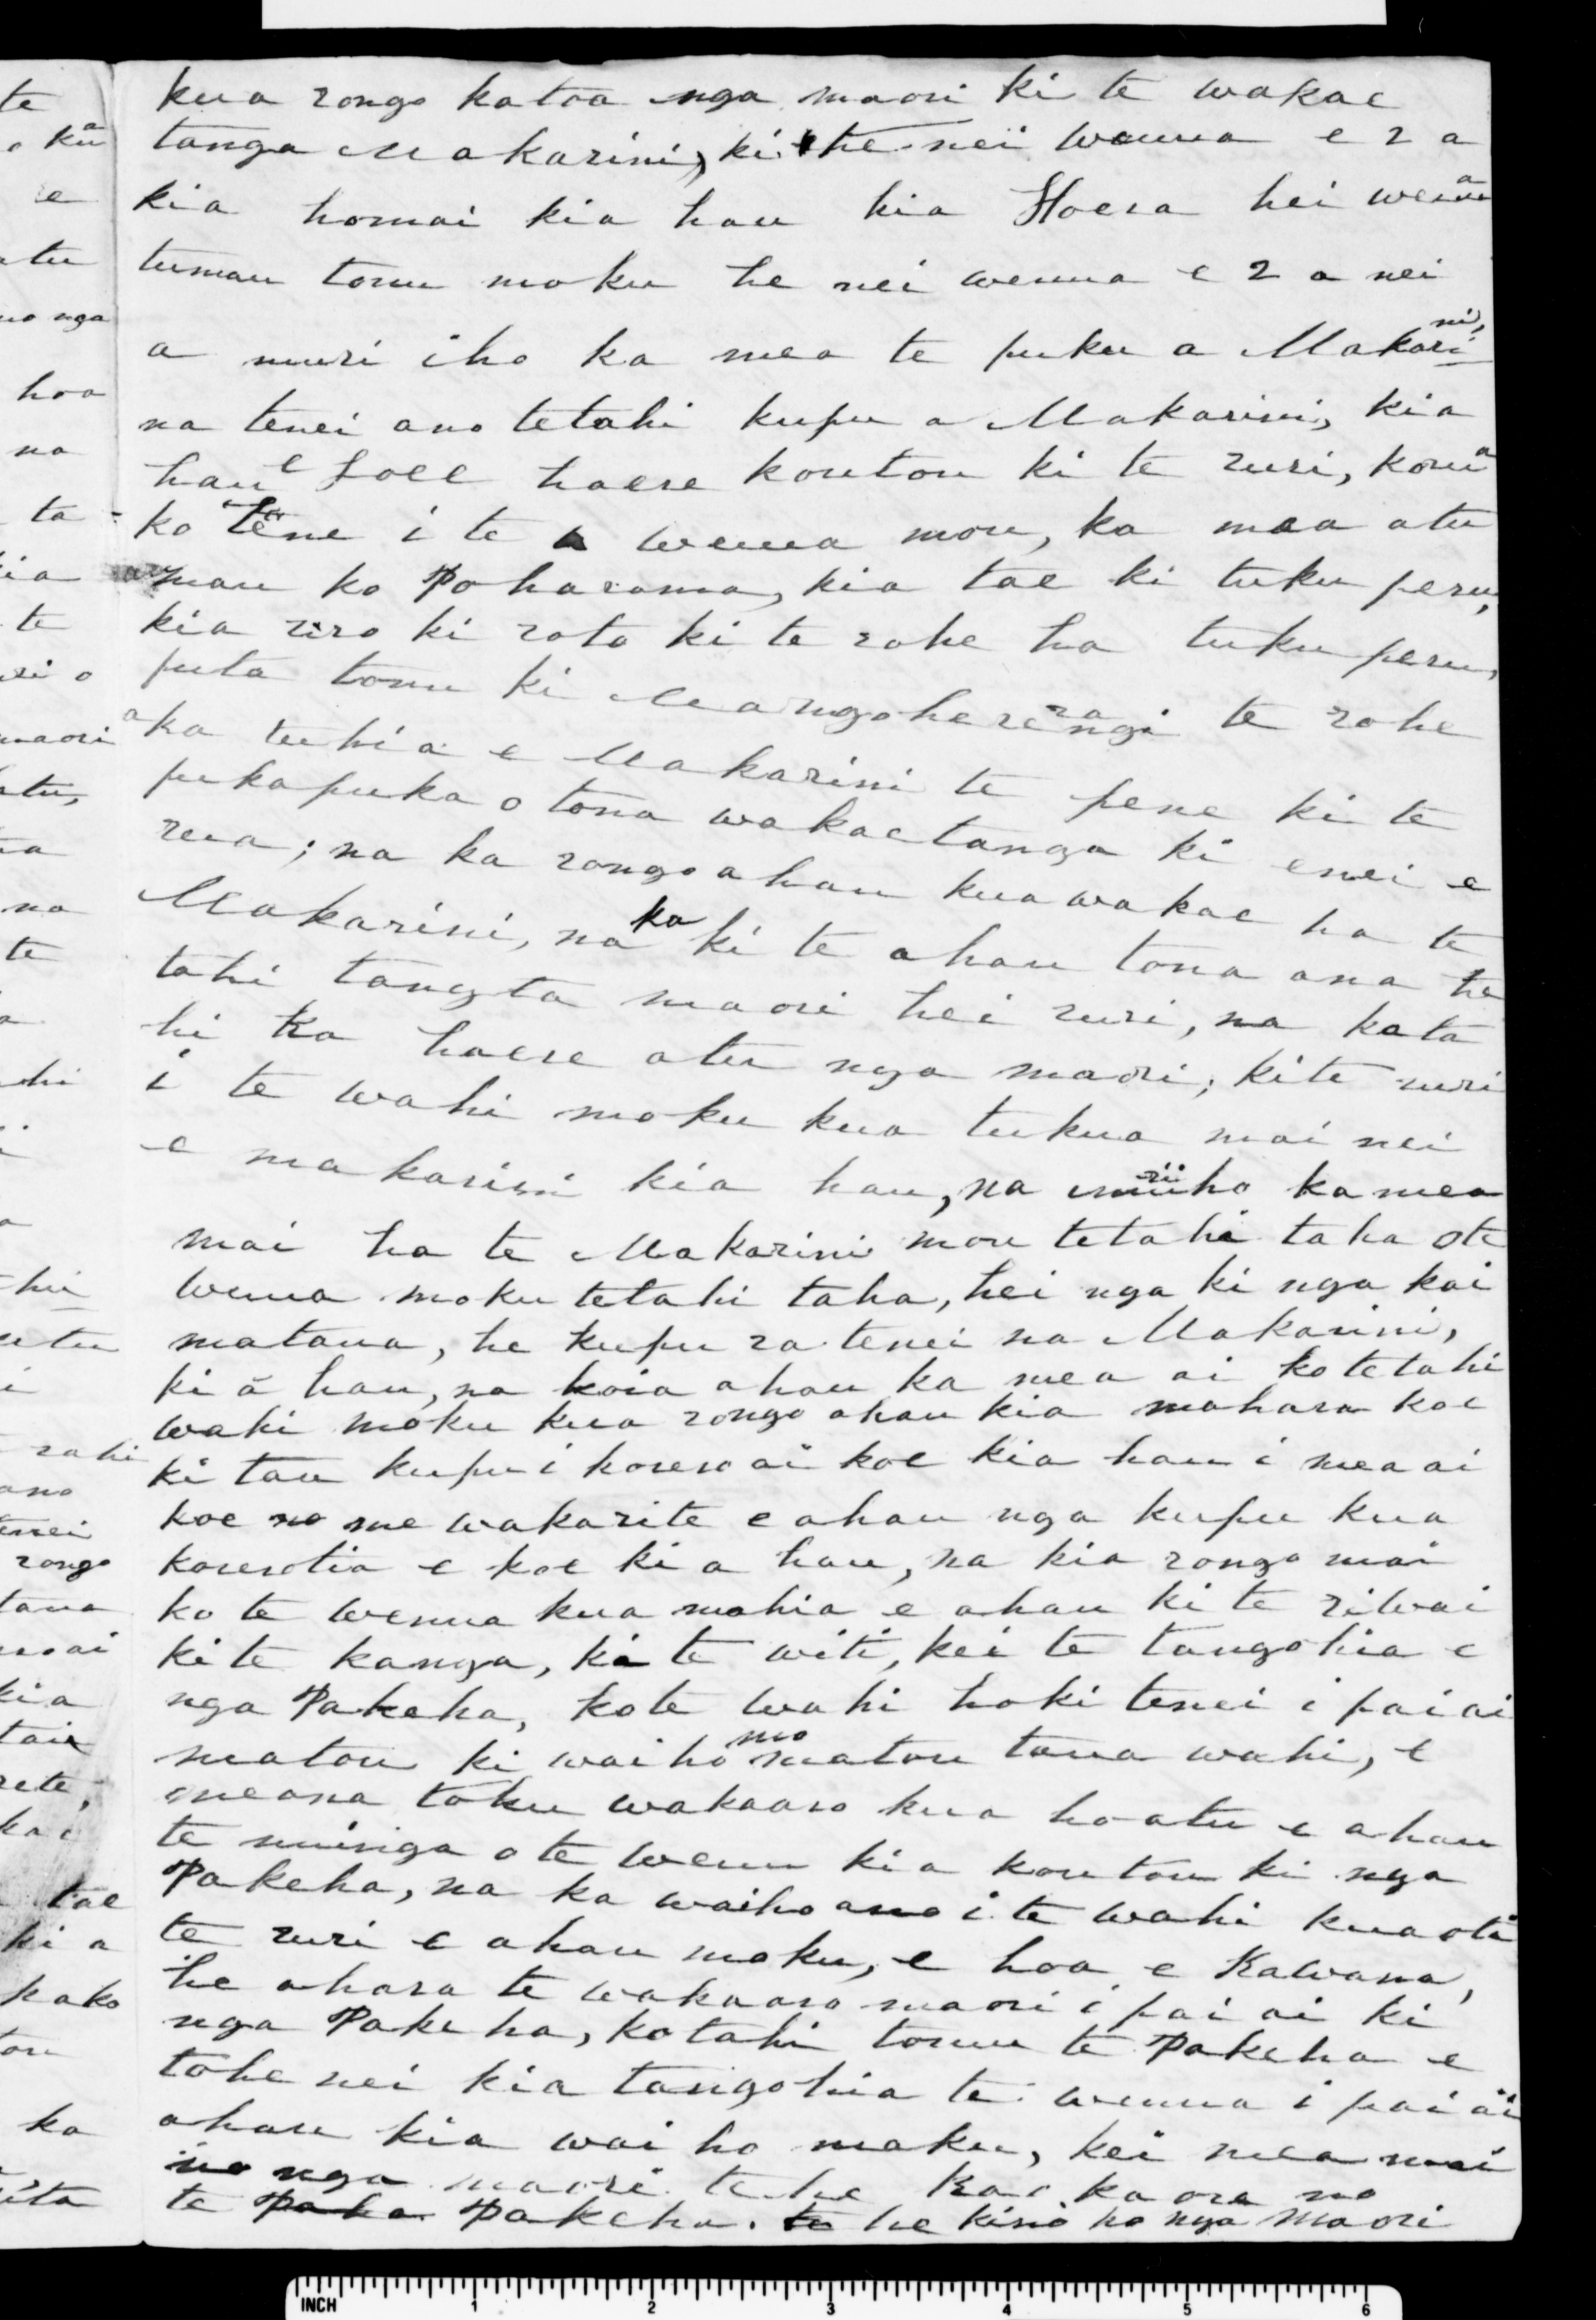 kua rongo katoa nga maori ki te wakae
tanga Makarini, ki te nei wenua e 2 a
kia homai kia hau kia Hoera hei wenua
tumau tonu moku he nei wenua e 2 a nei
a muri iho ka mea te puku a Makarini,
na tenei ano tetahi kupu a Makarini, kia
hau e hoee haere koutou ki te ruri, koua
ko tene i te wenua mou, ka mea atu
mau ko Poharama, kia tae ki tuku peru,
kia riro ki roto ki te rohe ha tuku peru,
puta tonu ki Mangoherangi te rohe
a ka tuhia e Makarini te pene ki te
pukapuka o tona wakaetanga ki enei e
rua; na ka rongo ahau kua wakae ha te
Makarini, na ka ki te ahau tona ana te
tahi tangta maori hei ruri, na kata
hi ka haere atu nga maori, ki te ruri
i te wahi moku kua tukua mai nei
e makarini kia hau, na muriiho ka mea
mai ha te Makarini mou tetahi taha ote
wenua moku tetahi taha, hei nga ki nga kai
mataua, he kupu ra tenei na Makarini,
ki a hau, na koia ahau ka mea ai ko tetahi
wahi moku kua rongo ahau kia mahara koe
ki tau kupu i korero ai koe kia hau i mea ai
koe me wakarite e ahau nga kupu kua
korerotia e koe ki a hau, na kia rongo mai
ko te wenua kua mahia e ahau ki te riwai
ki te kanga, ki te witi, kei te tangohia e
nga Pakeha, kote wahi hoki tenei i pai ai
matou ki waiho mo matou taua wahi, e
meana toku wakaaro kua hoatu e ahau
te nuinga o te wenu kia koutou ki nga
Pakeha, na ka waiho ano i te wahi kua oti
te ruri e ahau moku, e hoa e Kawana,
he ahara te wakaaro maori i pai ai ki
nga Pakeha, kotahi tonu te Pakeha e
tohe nei kia tangohia te wenua i pai ai
ahau kia waiho moku, kei mea mai
no nga maori te he kao kaore no
te Pakeha. he kino ho nga maori